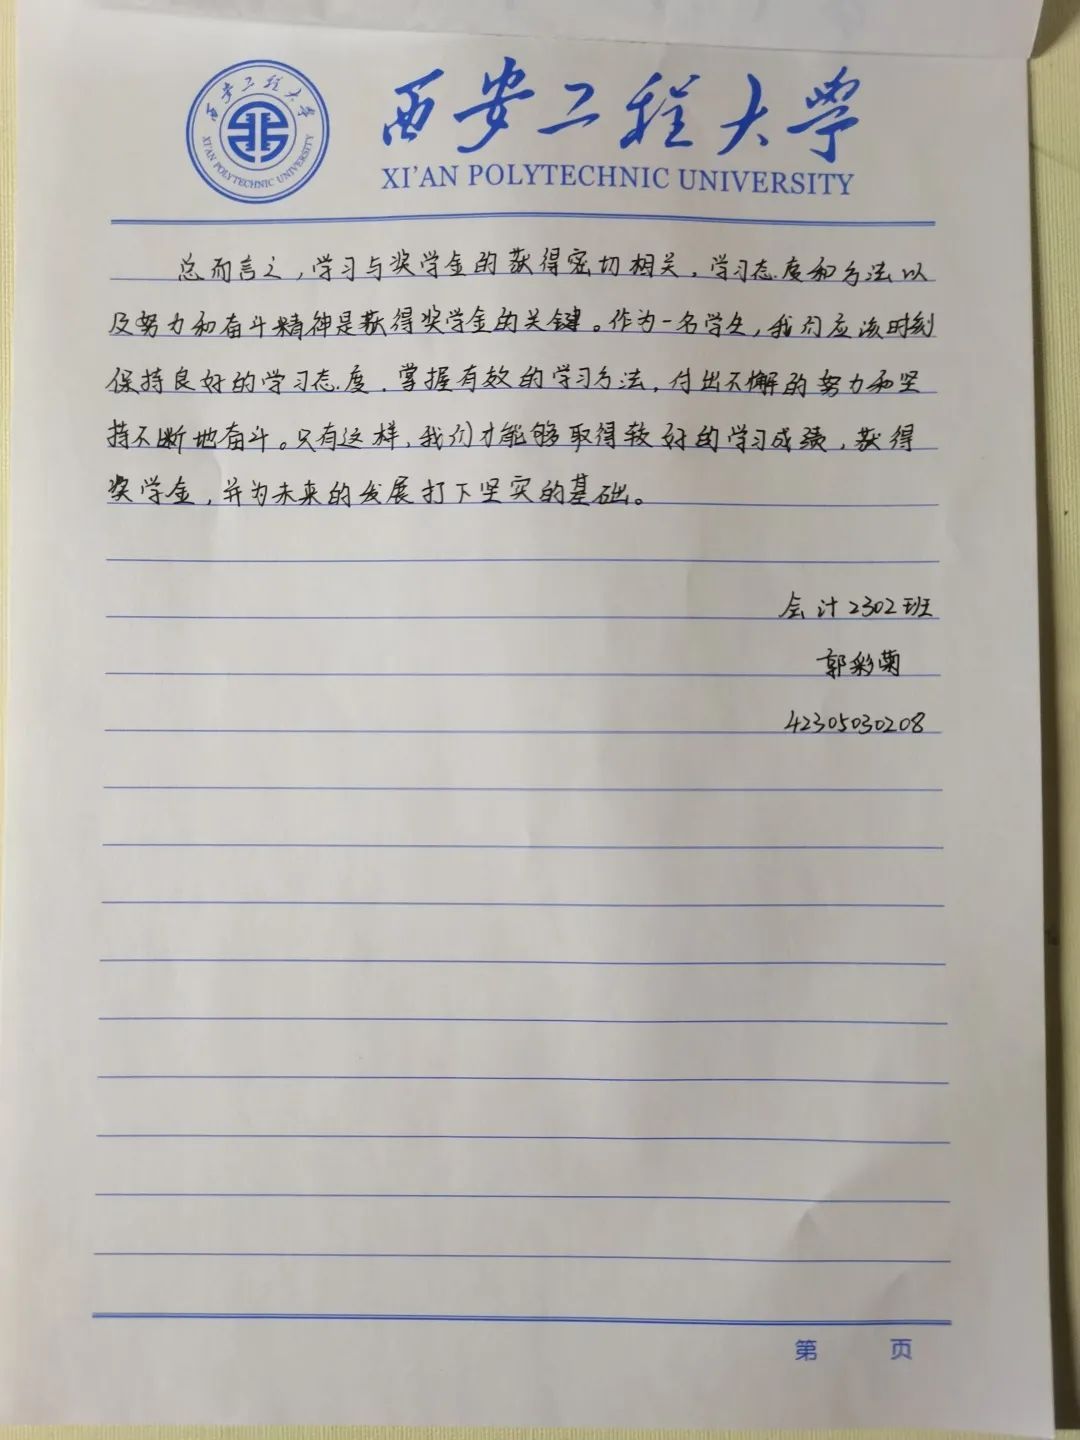 西安工程大学
XI'AN POLYTECHNIC UNIVERSITY
西安工程大学
XI'AN POLYTECHNIC UNIVERSITY
总而言之，学习与奖学金的获得密切相关，学习态度和方法以
及努力和奋斗精神是获得奖学金的关键。作为一名学生，我们应该时刻
保持良好的学习态度，掌握有效的学习方法，付出不懈的努力和坚
持不断地奋斗。只有这样，我们才能够取得较好的学习成绩，获得
奖学金，并为未来的发展打下坚实的基础。
会计2302班
郭彩菊
42305030208
第 页